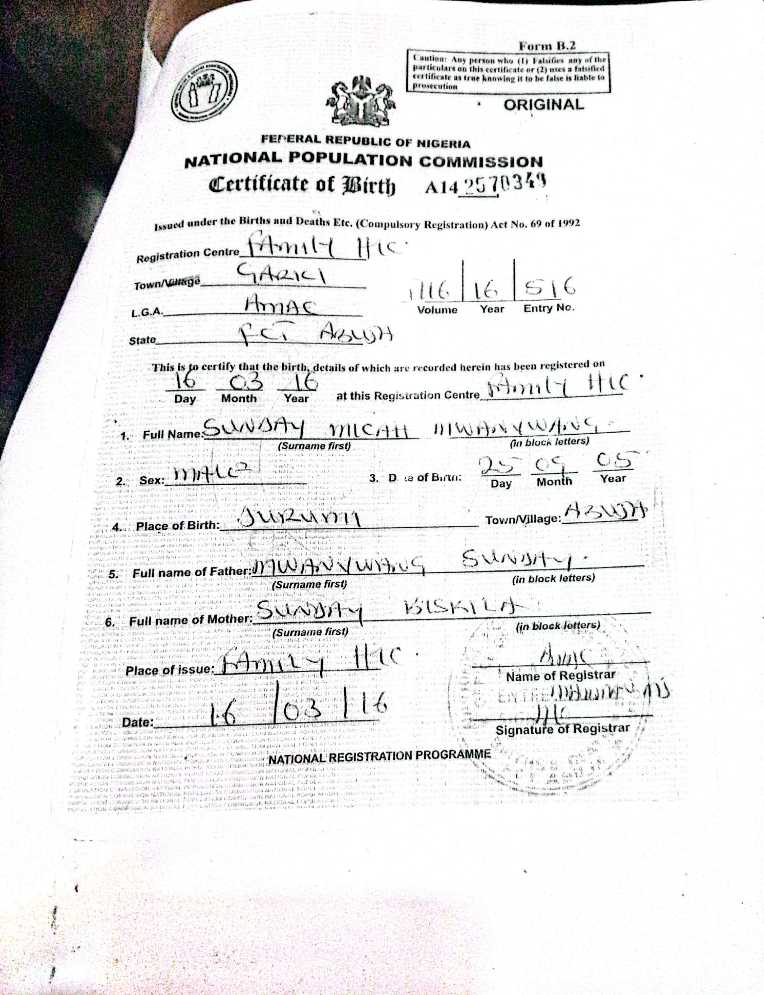 Form B.2
Caution: Any person who (1) Falsifies any of the
particulars on this certificate or (2) uses a falsified
certificate as true knowing it to be false is liable to
prosecution
ORIGINAL
FEDERAL REPUBLIC OF NIGERIA
NATIONAL POPULATION COMMISSION
Certificate of Birth A14 2570349
Issued under the Births and Deaths Etc. (Compulsory Registration) Act No. 69 of 1992
Registration Centre FAMILY HIC
Town/Village GARKI
L.G.A. AMAC
State FCT ABUJA
16 516
Volume Year Entry No.
This is to certify that the birth, details of which are recorded herein has been registered on
16 03 16
Day Month Year at this Registration Centre FAMILY HIC
1. Full Name: SUNDAY MICAH MWANYWANG
(Surname first) (in block letters)
2. Sex: MALE 3. Date of Birth: 25 09 05
Day Month Year
4. Place of Birth: Town/Village: ABUJA
5. Full name of Father: MWANYWANG SUNDAY
(Surname first) (in block letters)
6. Full name of Mother: SUNDAY BISKILA
(Surname first) (in block letters)
Place of issue: FAMILY HIC
AMAC
Name of Registrar
Date: 16/03/16
Signature of Registrar
NATIONAL REGISTRATION PROGRAMME